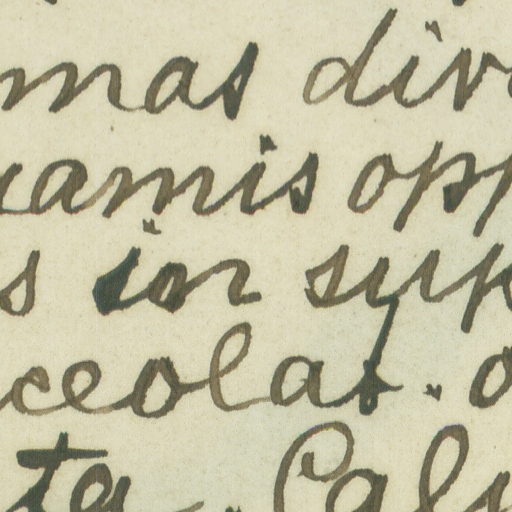 mas div
amis opp
s ior sup
ceolas. o
ta. Caly